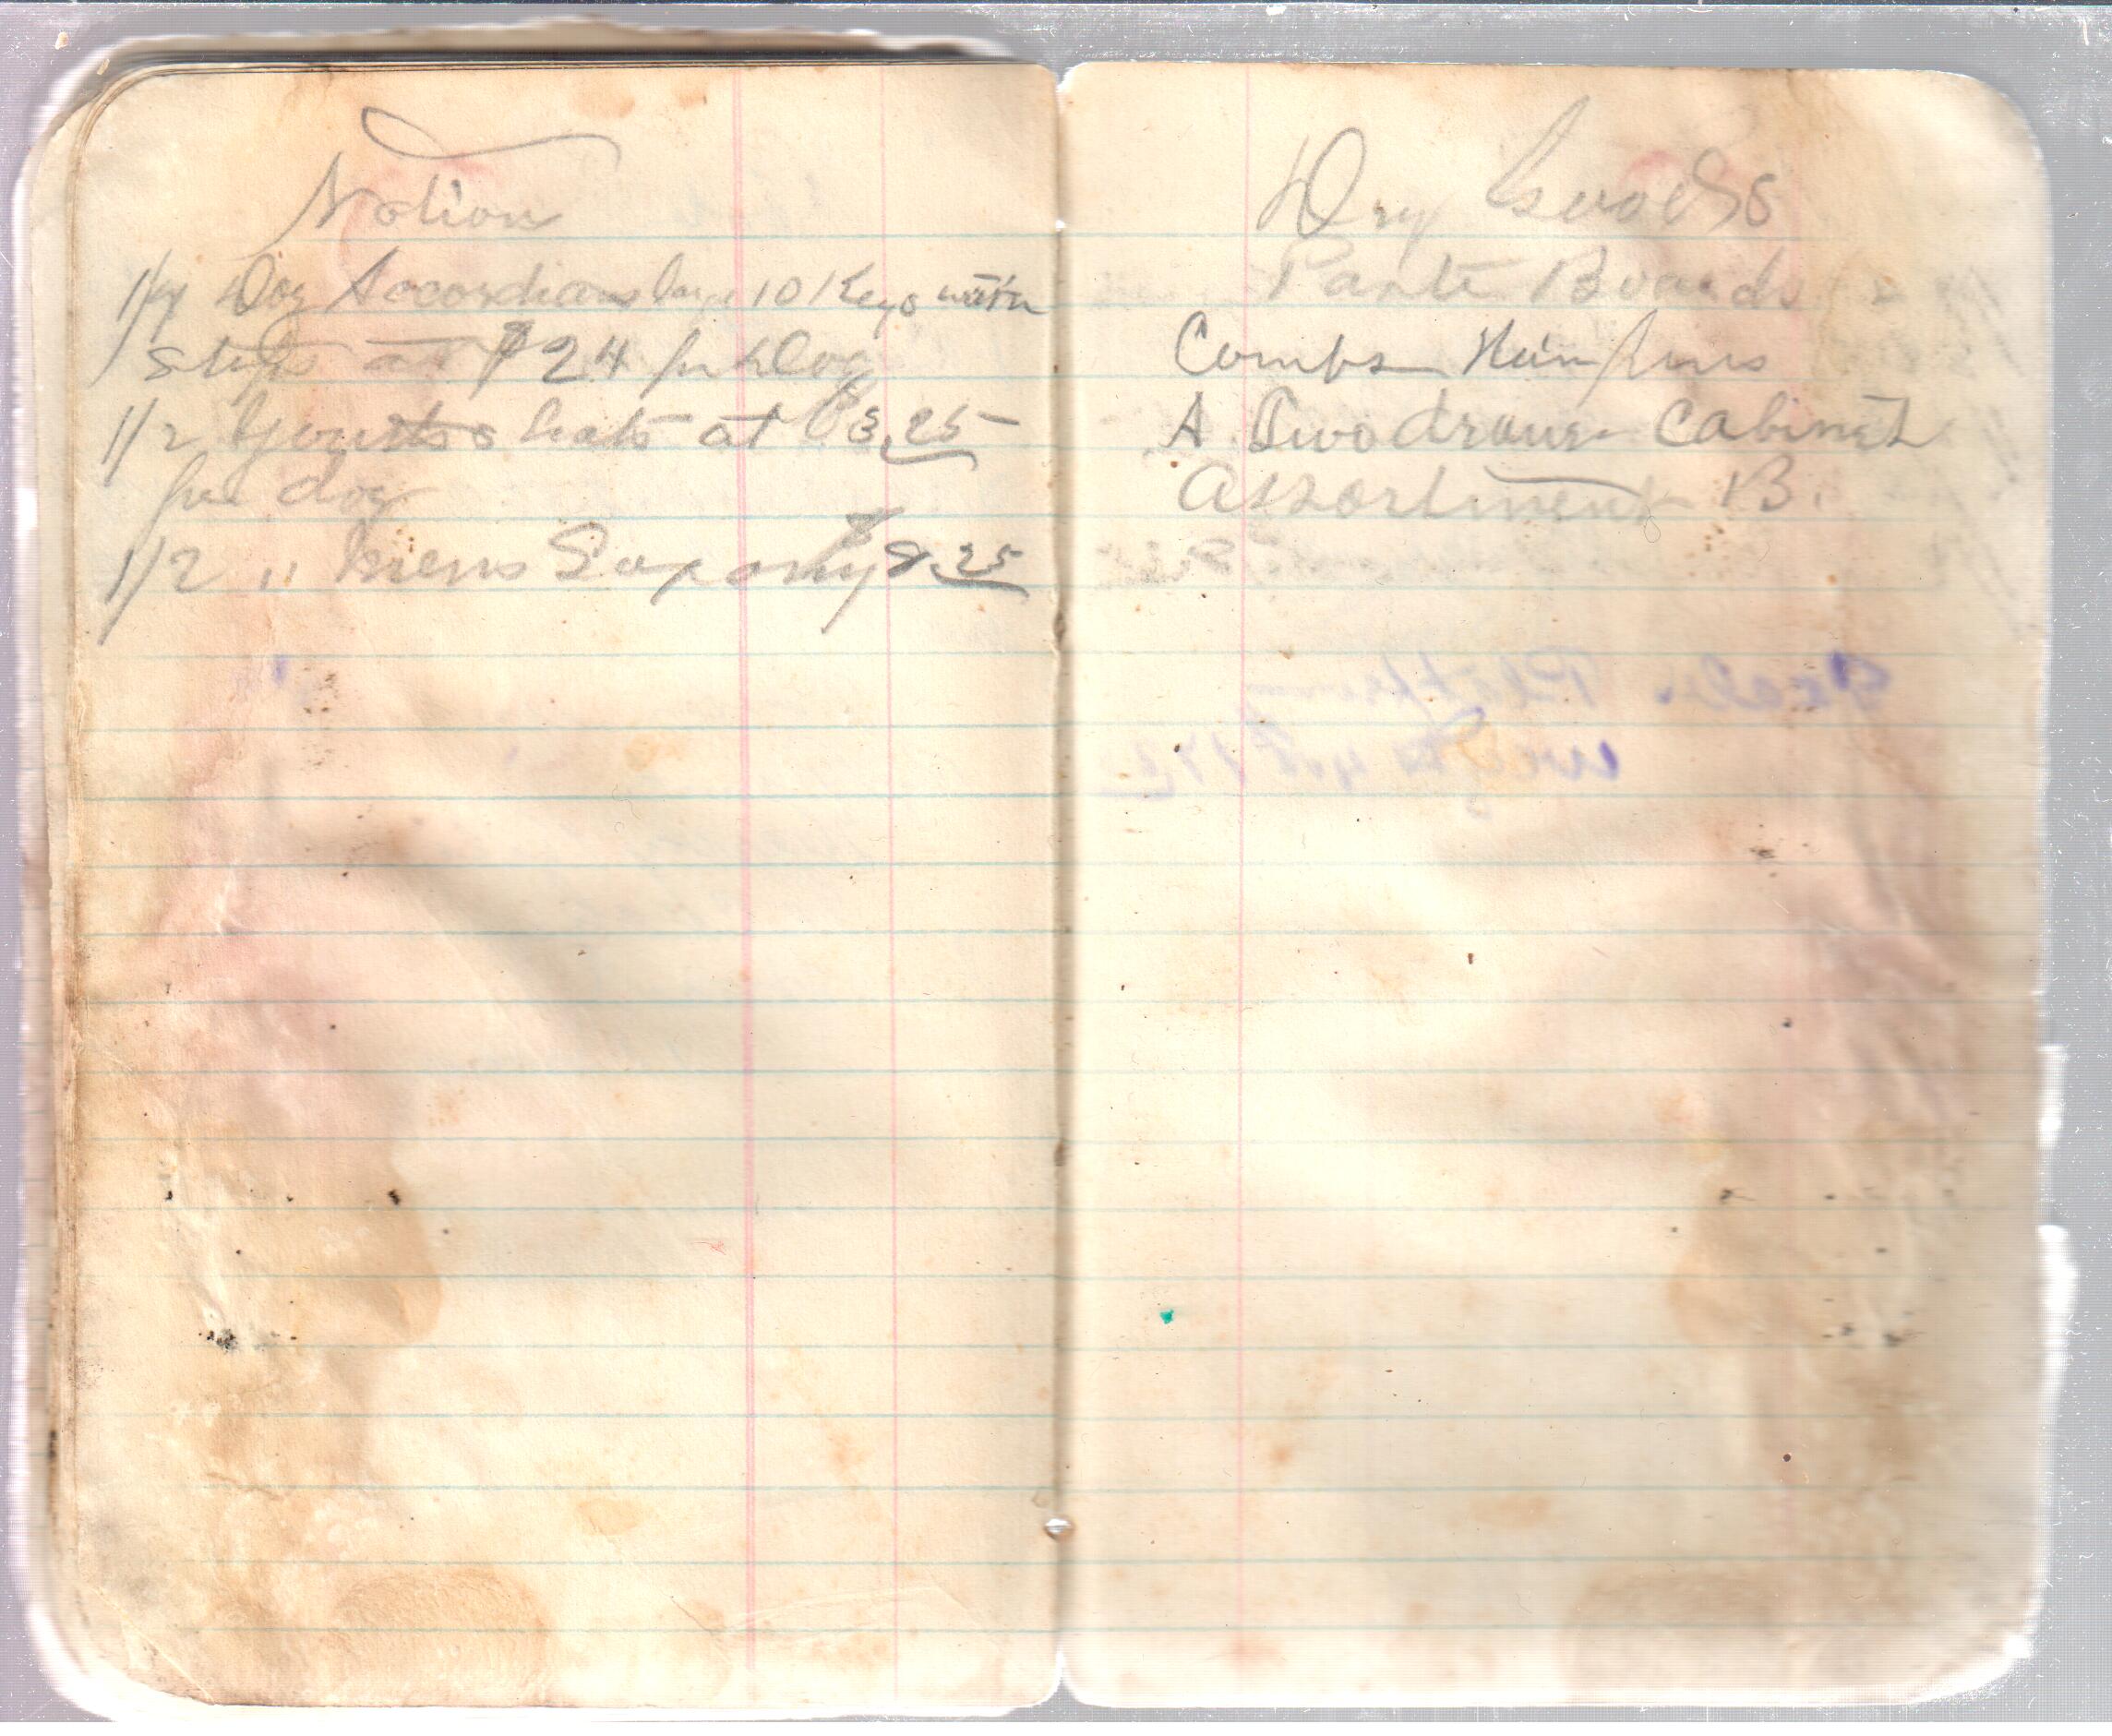 Notion
1/4 Doz Accordians large 10 Keys with
stops at $24 per Doz
1/2 Youths hats at $3.25
per doz
1/2 " mens Saxony $8.25
Dry Goods
Pants Boards
Combs Hair pins
A Two drawer Cabinet
Assortment B.
Scale Platform